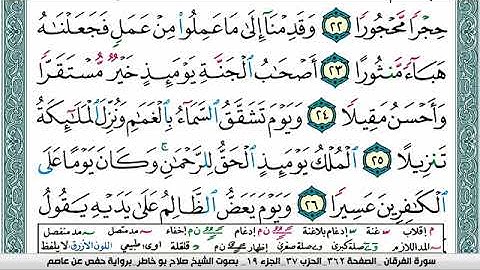 حِجْرًا مَّحْجُورًا ٢٢ وَقَدِمْنَآ إِلَىٰ مَا عَمِلُوا۟ مِنْ عَمَلٍ فَجَعَلْنَٰهُ
هَبَآءً مَّنثُورًا ٢٣ أَصْحَٰبُ ٱلْجَنَّةِ يَوْمَئِذٍ خَيْرٌ مُّسْتَقَرًّا
وَأَحْسَنُ مَقِيلًا ٢٤ وَيَوْمَ تَشَقَّقُ ٱلسَّمَآءُ بِٱلْغَمَٰمِ وَنُزِّلَ ٱلْمَلَٰٓئِكَةُ
تَنزِيلًا ٢٥ ٱلْمُلْكُ يَوْمَئِذٍ ٱلْحَقُّ لِلرَّحْمَٰنِ ۚ وَكَانَ يَوْمًا عَلَى
ٱلْكَٰفِرِينَ عَسِيرًا ٢٦ وَيَوْمَ يَعَضُّ ٱلظَّالِمُ عَلَىٰ يَدَيْهِ يَقُولُ
م إقلاب غنة إدغام بلاغنة إدغام إخفاء مد متصل مد منفصل
المد اللازم صلة كبرى صلة صغرى إظهار قلقلة أوى: طبيعي اللون الأزرق لا يلفظ
سورة الفرقان _ الصفحة ٣٦٢_ الحزب ٣٧ _ الجزء ١٩ _ بصوت الشيخ صلاح بو خاطر_ برواية حفص عن عاصم